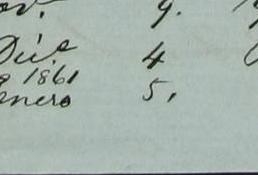 ov. 9.
Dic.e 4
1861
enero 5.